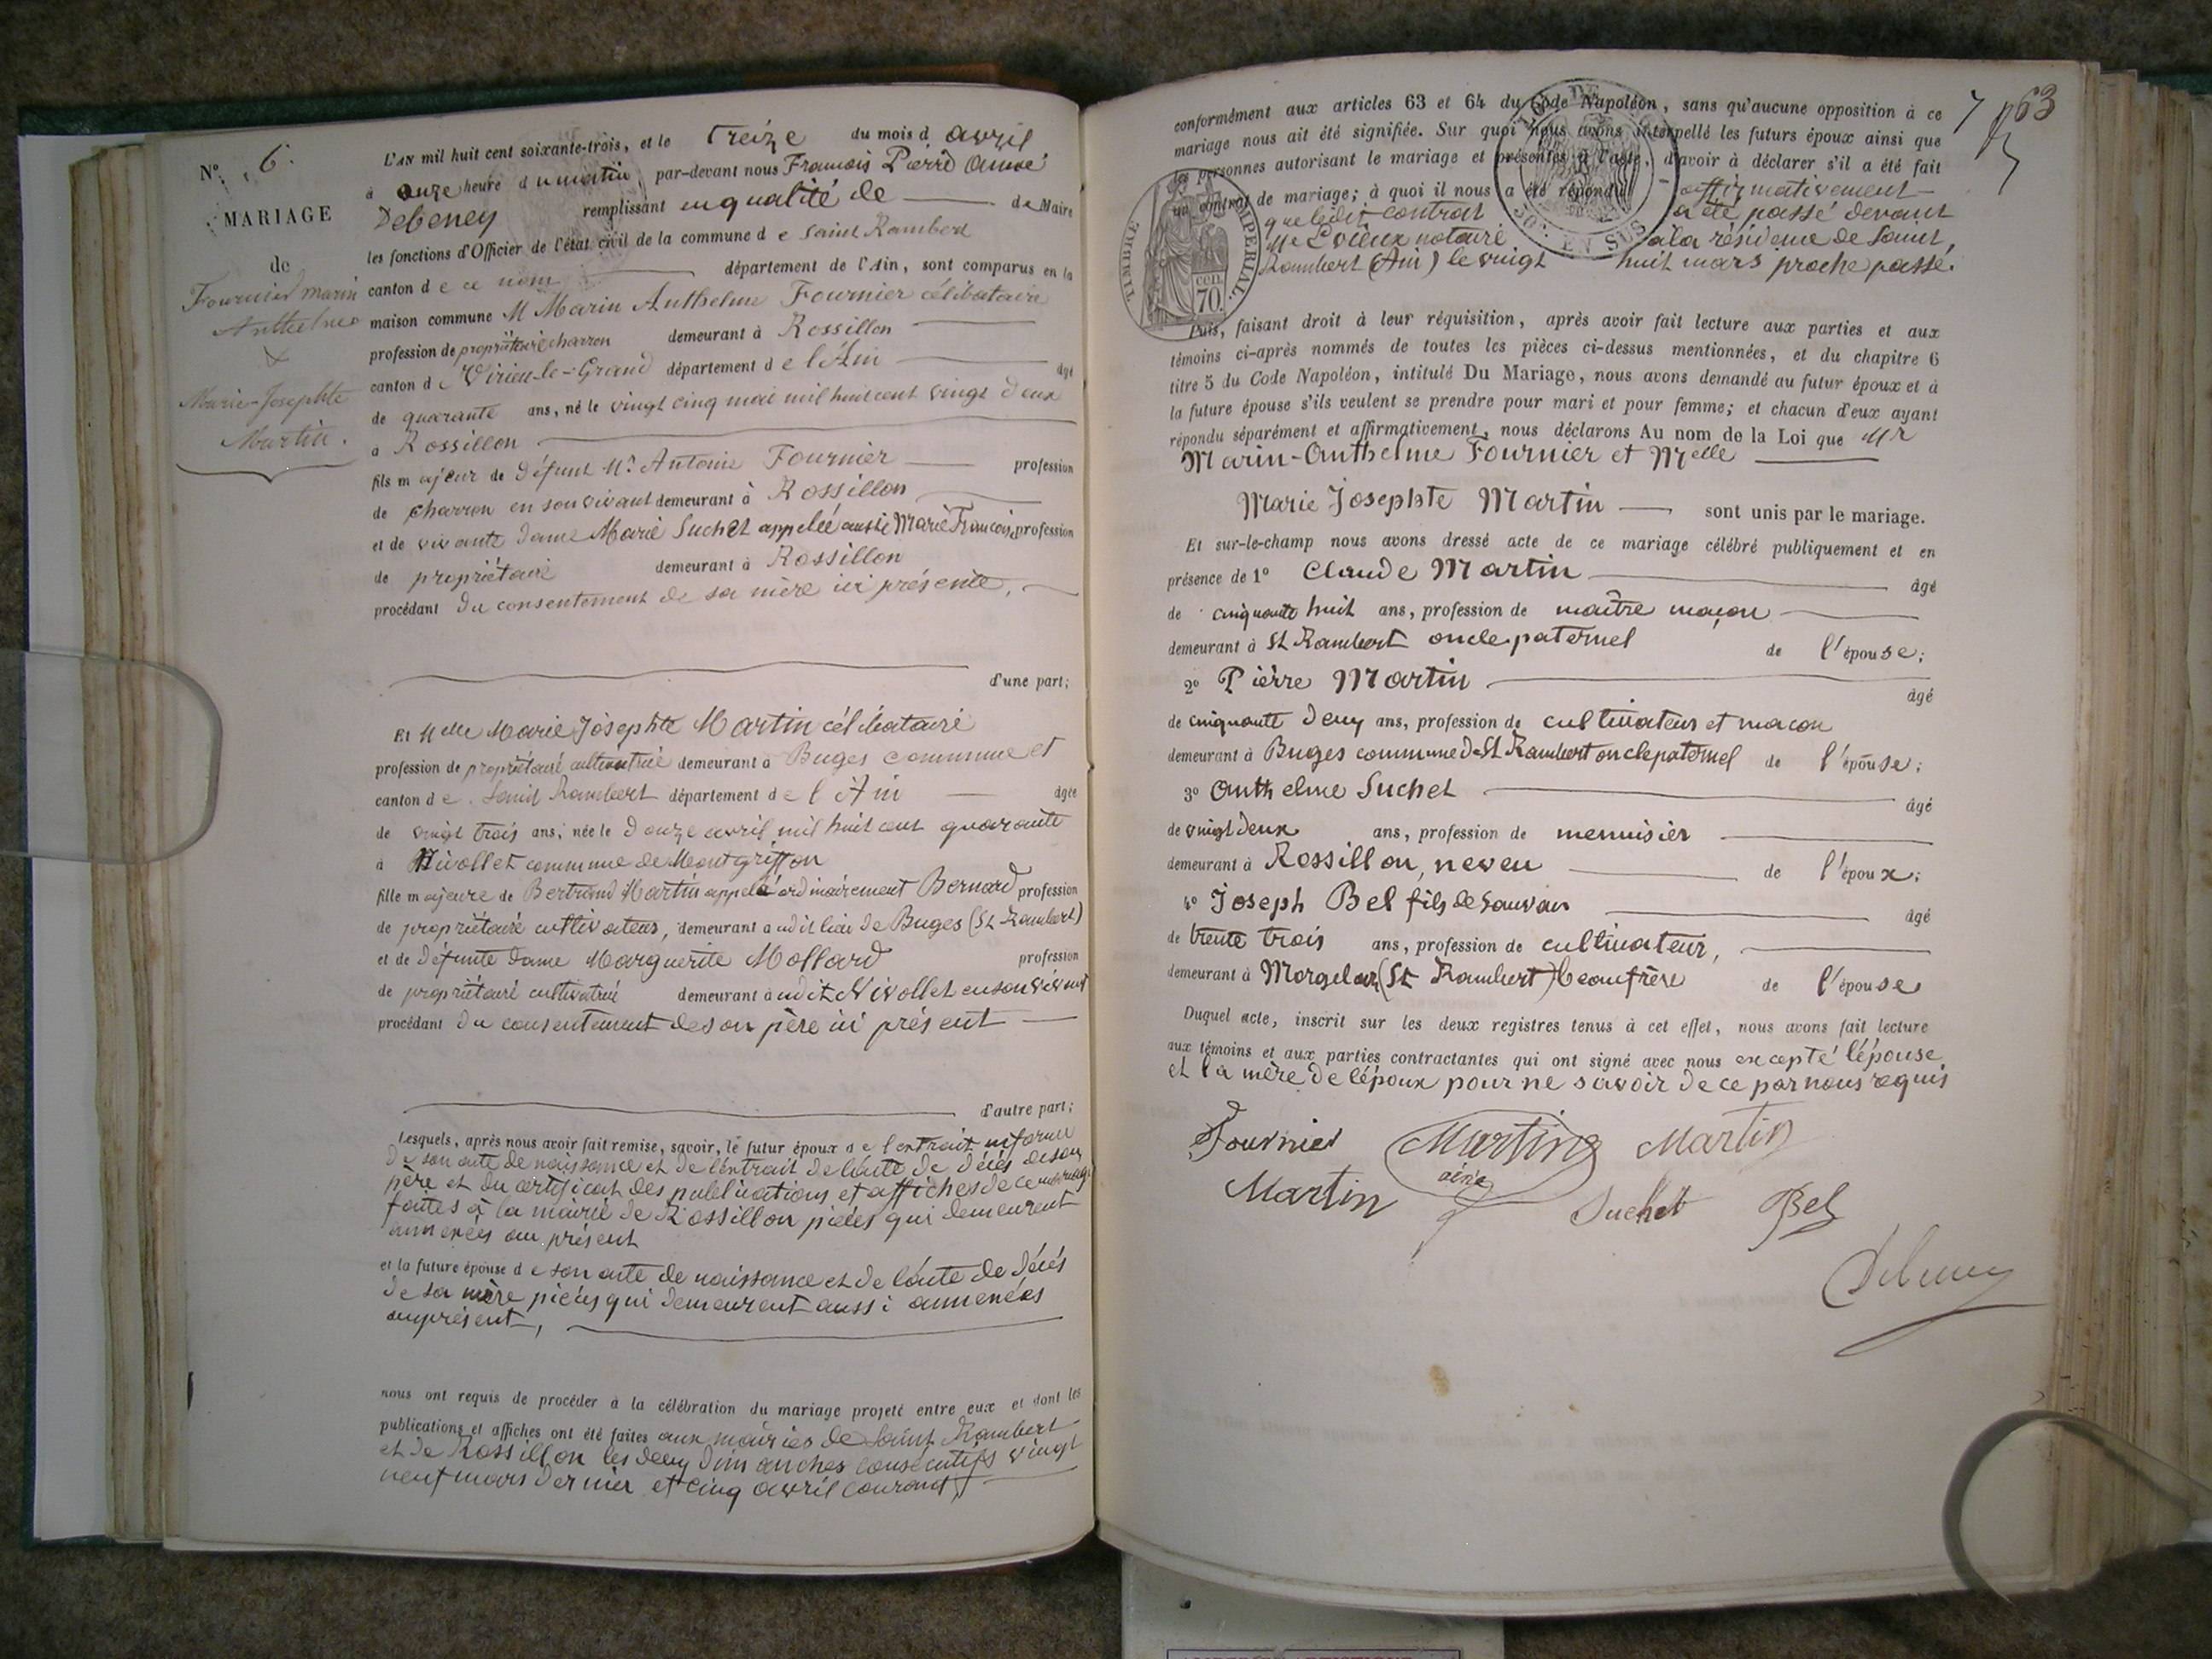 N° 6.
MARIAGE
de
Fournier Marin
Anthelme
&
Marie-Josephte
Martin.
L'AN mil huit cent soixante-trois, et le Treize du mois d avril
à onze heure d u matin, par-devant nous François Pierre Aimé
Debeney remplissant en qualité de de Maire
les fonctions d'Officier de l'état civil de la commune d e Saint Rambert
canton d e ce nom département de l'Ain, sont comparus en la
maison commune M Marin Anthelme Fournier célibataire
profession de propriétaire charron demeurant à Rossillon
canton d e Virieu-le-Grand département d e l'Ain âgé
de quarante ans, né le vingt cinq mai mil huit cent vingt deux
à Rossillon
fils m ajeur de défunt Mr Antoine Fournier profession
de charron en son vivant demeurant à Rossillon
et de vivante dame Marie Suchet appelée aussi Marie Françoise profession
de propriétaire demeurant à Rossillon
procédant du consentement de sa mère ici présente,
d'une part;
Et Melle Marie Josephte Martin célibataire
profession de propriétaire cultivatrice demeurant à Buges commune et
canton d e Saint Rambert département d e l'Ain âgée
de vingt trois ans, née le douze avril mil huit cent quarante
à Nivollet commune de Montgriffon
fille m ajeure de Bertrand Martin appelé ordinairement Bernard profession
de propriétaire cultivateur, demeurant a udit lieu de Buges (St Rambert)
et de défunte dame Marguerite Mollard profession
de propriétaire cultivatrice demeurant à udit Nivollet en son vivant
procédant du consentement de son père ici présent
d'autre part;
Lesquels, après nous avoir fait remise, savoir, le futur époux d e l'extrait en forme
de son acte de naissance et de l'extrait de l'acte de décès de son
père et du certificat des publications et affiches de ce mariage
faites à la mairie de Rossillon pièces qui demeurent
annexées au présent
et la future épouse d e son acte de naissance et de l'acte de décès
de sa mère pièces qui demeurent aussi annexées
au présent,
nous ont requis de procéder à la célébration du mariage projeté entre eux et dont les
publications et affiches ont été faites aux mairies de Saint Rambert
et de Rossillon les deux dimanches consécutifs vingt
neuf mars dernier et cinq avril courant
7 63
conformément aux articles 63 et 64 du Code Napoléon, sans qu'aucune opposition à ce
mariage nous ait été signifiée. Sur quoi nous avons interpellé les futurs époux ainsi que
les personnes autorisant le mariage et présentes à l'acte, d'avoir à déclarer s'il a été fait
un contrat de mariage; à quoi il nous a été répondu affirmativement
que ledit contrat a été passé devant
Me notaire à la résidence de Saint,
Rambert (Ain) le vingt huit mars proche passé.
TIMBRE IMPERIAL.
cen.
70.
50c EN SUS
Puis, faisant droit à leur réquisition, après avoir fait lecture aux parties et aux
témoins ci-après nommés de toutes les pièces ci-dessus mentionnées, et du chapitre 6
titre 5 du Code Napoléon, intitulé Du Mariage, nous avons demandé au futur époux et à
la future épouse s'ils veulent se prendre pour mari et pour femme; et chacun d'eux ayant
répondu séparément et affirmativement, nous déclarons Au nom de la Loi que Mr
Marin-Anthelme Fournier et Melle
Marie Josephte Martin sont unis par le mariage.
Et sur-le-champ nous avons dressé acte de ce mariage célébré publiquement et en
présence de 1° Claude Martin âgé
de cinquante huit ans, profession de maître maçon
demeurant à St Rambert oncle paternel de l'épouse;
2° Pièrre Martin âgé
de cinquante deux ans, profession de cultivateur et macon
demeurant à Buges commune de St Rambert oncle paternel de l'épouse;
3° Anthelme Suchet âgé
de vingt deux ans, profession de menuisier
demeurant à Rossillon, neveu de l'époux;
4° Joseph Bel fils de âgé
de trente trois ans, profession de cultivateur,
demeurant à Morgelas (St Rambert) beaufrère de l'épouse
Duquel acte, inscrit sur les deux registres tenus à cet effet, nous avons fait lecture
aux témoins et aux parties contractantes qui ont signé avec nous excepté l'épouse
et la mère de l'époux pour ne savoir de ce par nous requis
Fournier Martin Martin
aîné
Martin Suchet Bel
Debeney